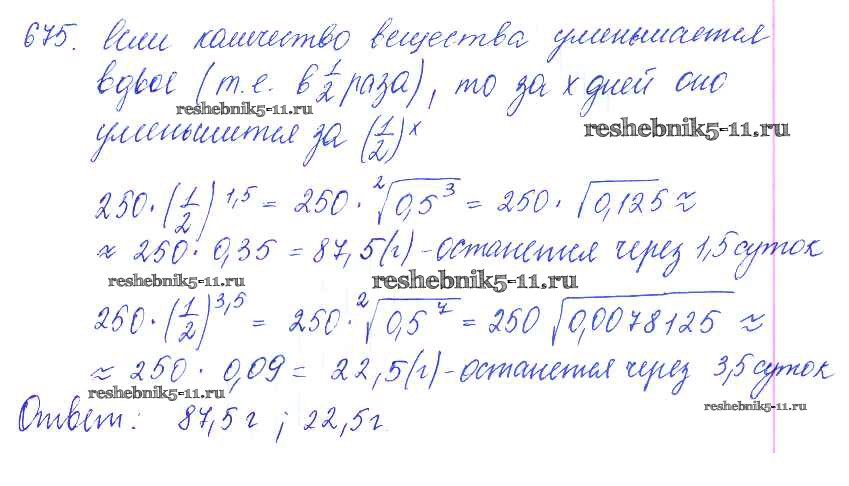 675. Если количество вещества уменьшается
вдвое (т.е. в 1/2 раза), то за x дней оно
reshebnik5-11.ru
уменьшится за (1/2)^x
reshebnik5-11.ru
250·(1/2)^1,5 = 250·²√0,5³ = 250·√0,125 ≈
≈ 250·0,35 = 87,5(г) - останется через 1,5 суток
reshebnik5-11.ru
reshebnik5-11.ru
250·(1/2)^3,5 = 250·²√0,5⁷ = 250√0,0078125 ≈
≈ 250·0,09 = 22,5(г) - останется через 3,5 суток
reshebnik5-11.ru
reshebnik5-11.ru
Ответ: 87,5г ; 22,5г